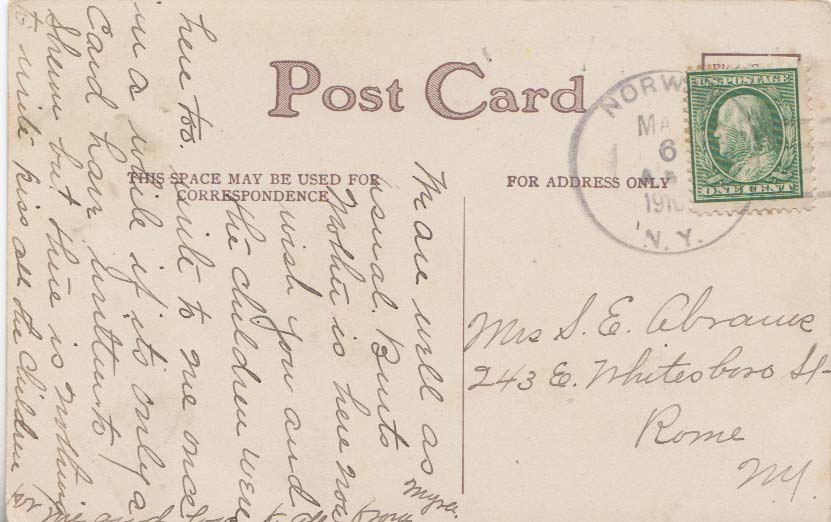 Post Card
THIS SPACE MAY BE USED FOR
CORRESPONDENCE
FOR ADDRESS ONLY
NORW
MA
6
1910
N.Y.
U.S. POSTAGE
ONE CENT
Mrs S. E. Abrams
243 E. Whitesboro St
Rome
NY.
We are well as
usual. Burts
Mother is here now
wish you and
the children were
here too. write to me once
in a while if its only a
Card have written to
Sherm but there is nothing
to write kiss all the children for
me and love to all from
Myra.